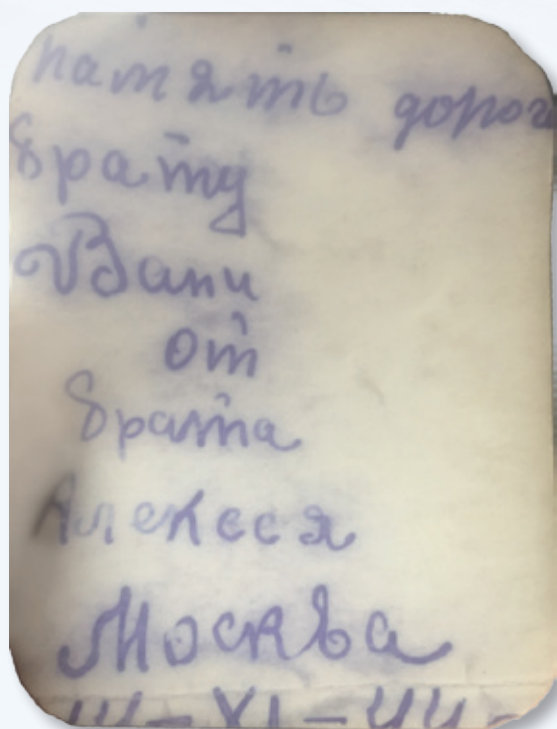 память дорог
брату
Вани
от
брата
Алексея
Москва